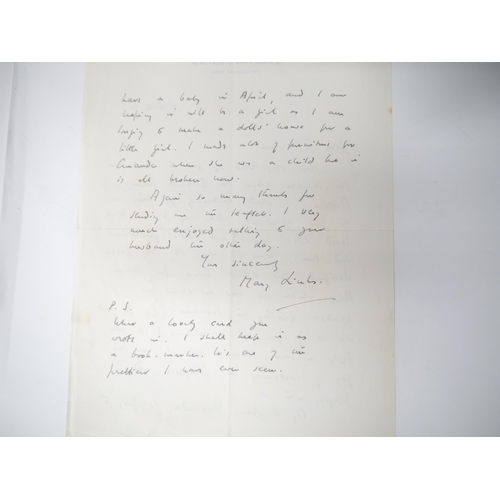 have a baby in April, and I am
hoping it will be a girl as I am
longing to make a dolls' house for a
little girl. I made a lot of furniture for
Amanda when she was a child but it
is all broken now.
Again so many thanks for
sending me the leaflet. I very
much enjoyed talking to your
husband the other day.
Yours sincerely
Mary
P.S.
What a lovely card you
wrote in. I shall keep it as
a book-marker. It's one of the
prettiest I have ever seen.